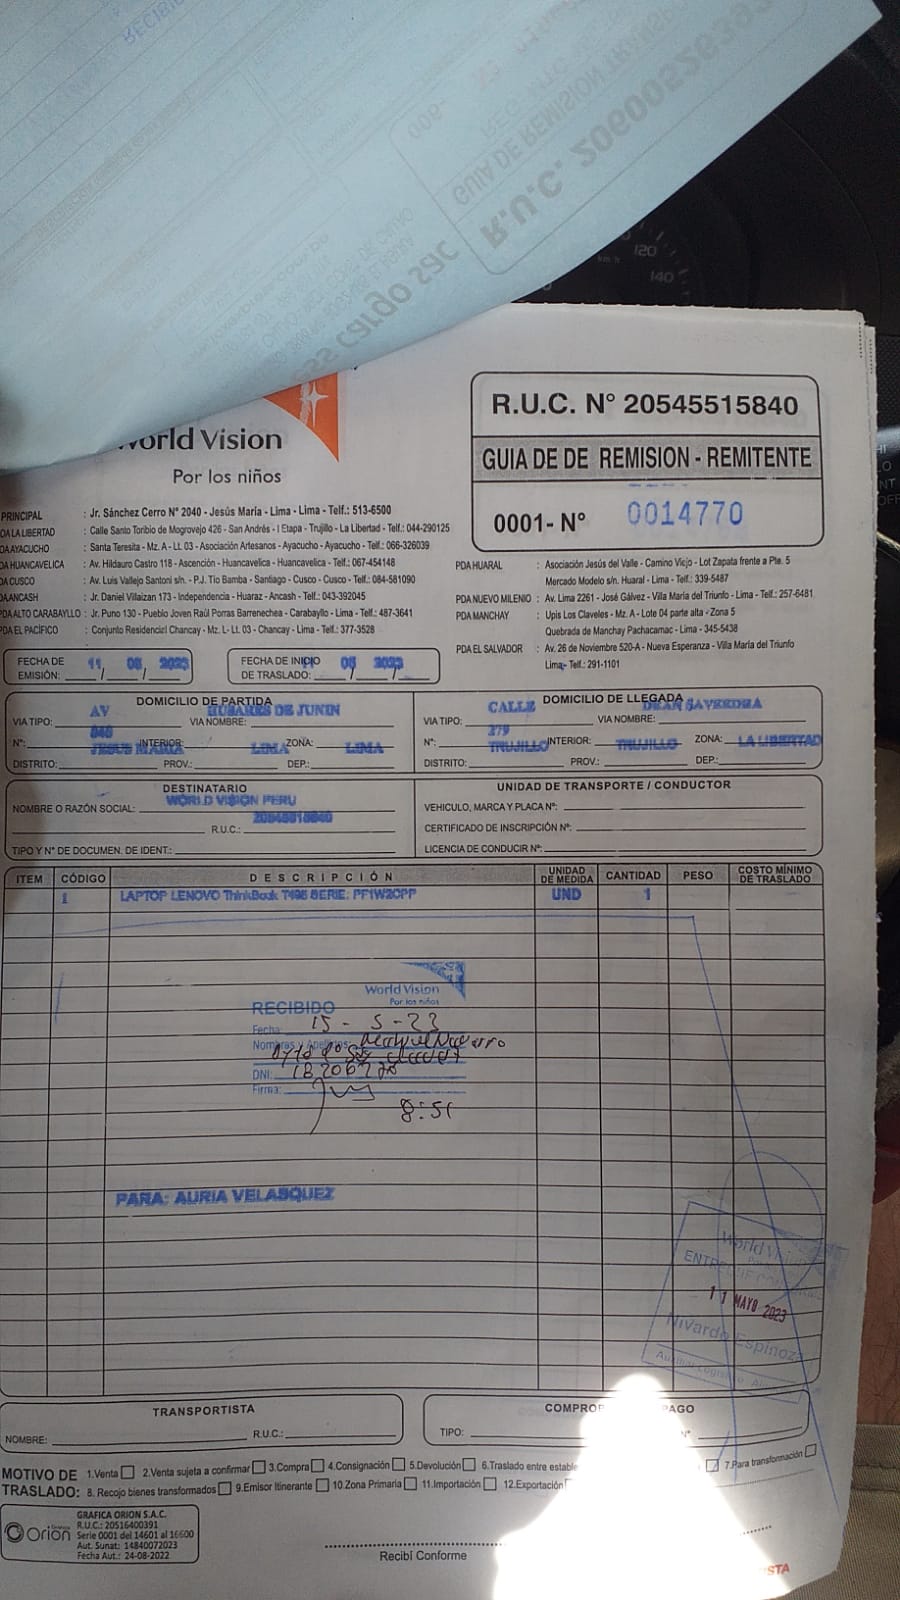 R.U.C. 2060052839
GUIA DE REMISION TRANSPO
ss cargo sac
120
km/h
140
World Vision
Por los niños
R.U.C. N° 20545515840
GUIA DE DE REMISION - REMITENTE
0001- N° 0014770
PRINCIPAL : Jr. Sánchez Cerro N° 2040 - Jesús María - Lima - Lima - Telf.: 513-6500
DA LA LIBERTAD : Calle Santo Toribio de Mogrovejo 426 - San Andrés - I Etapa - Trujillo - La Libertad - Telf.: 044-290125
DA AYACUCHO : Santa Teresita - Mz. A - Lt. 03 - Asociación Artesanos - Ayacucho - Ayacucho - Telf.: 066-326039
DA HUANCAVELICA : Av. Hildauro Castro 118 - Ascención - Huancavelica - Huancavelica - Telf.: 067-454148
DA CUSCO : Av. Luis Vallejo Santoni s/n. - P.J. Tío Bamba - Santiago - Cusco - Cusco - Telf.: 084-581090
DA ANCASH : Jr. Daniel Villaizan 173 - Independencia - Huaraz - Ancash - Telf.: 043-392045
PDA ALTO CARABAYLLO : Jr. Puno 130 - Pueblo Joven Raúl Porras Barrenechea - Carabayllo - Lima - Telf.: 487-3641
PDA EL PACÍFICO : Conjunto Residencirl Chancay - Mz. L- Lt. 03 - Chancay - Lima - Telf.: 377-3528
PDA HUARAL : Asociación Jesús del Valle - Camino Viejo - Lot Zapata frente a Pte. 5
Mercado Modelo s/n. Huaral - Lima - Telf.: 339-5487
PDA NUEVO MILENIO : Av. Lima 2261 - José Gálvez - Villa María del Triunfo - Lima - Telf.: 257-6481
PDA MANCHAY : Upis Los Claveles - Mz. A - Lote 04 parte alta - Zona 5
Quebrada de Manchay Pachacamac - Lima - 345-5438
PDA EL SALVADOR : Av. 26 de Noviembre 520-A - Nueva Esperanza - Villa María del Triunfo
Lima- Telf.: 291-1101
FECHA DE EMISIÓN: 11 / 05 / 2023
FECHA DE INICIO DE TRASLADO: 05 / 2023
DOMICILIO DE PARTIDA
VIA TIPO: AV VIA NOMBRE: HUSARES DE JUNIN
N°: INTERIOR: ZONA:
DISTRITO: JESUS MARIA PROV.: LIMA DEP.: LIMA
DOMICILIO DE LLEGADA
VIA TIPO: CALLE VIA NOMBRE: DEAN SAVERDRA
N°: 279 INTERIOR: ZONA:
DISTRITO: TRUJILLO PROV.: TRUJILLO DEP.: LA LIBERTAD
DESTINATARIO
NOMBRE O RAZÓN SOCIAL: WORLD VISION PERU
R.U.C.: 20545515840
TIPO Y N° DE DOCUMEN. DE IDENT.:
UNIDAD DE TRANSPORTE / CONDUCTOR
VEHICULO, MARCA Y PLACA N°:
CERTIFICADO DE INSCRIPCIÓN N°:
LICENCIA DE CONDUCIR N°:
ITEM CÓDIGO DESCRIPCIÓN UNIDAD DE MEDIDA CANTIDAD PESO COSTO MÍNIMO DE TRASLADO
1 LAPTOP LENOVO ThinkBook T495 SERIE: PF1W2CPP UND 1
World Vision
Por los niños
RECIBIDO
Fecha: 15 - 5 - 23
Nombres y Apellidos:
DNI: 18206720
Firma:
8:51
PARA: AURIA VELASQUEZ
World Vision
11 MAYO 2023
Nivardo Espinoza
TRANSPORTISTA
NOMBRE: R.U.C.:
COMPRO PAGO
TIPO: N°
MOTIVO DE TRASLADO: 1.Venta 2.Venta sujeta a confirmar 3.Compra 4.Consignación 5.Devolución 6.Traslado entre estable 7.Para transformación
8. Recojo bienes transformados 9.Emisor Itinerante 10.Zona Primaria 11.Importación 12.Exportación
Orión
GRAFICA ORION S.A.C.
R.U.C.: 20516400391
Serie 0001 del 14601 al 16600
Aut. Sunat: 14840072023
Fecha Aut.: 24-08-2022
Recibí Conforme
STA